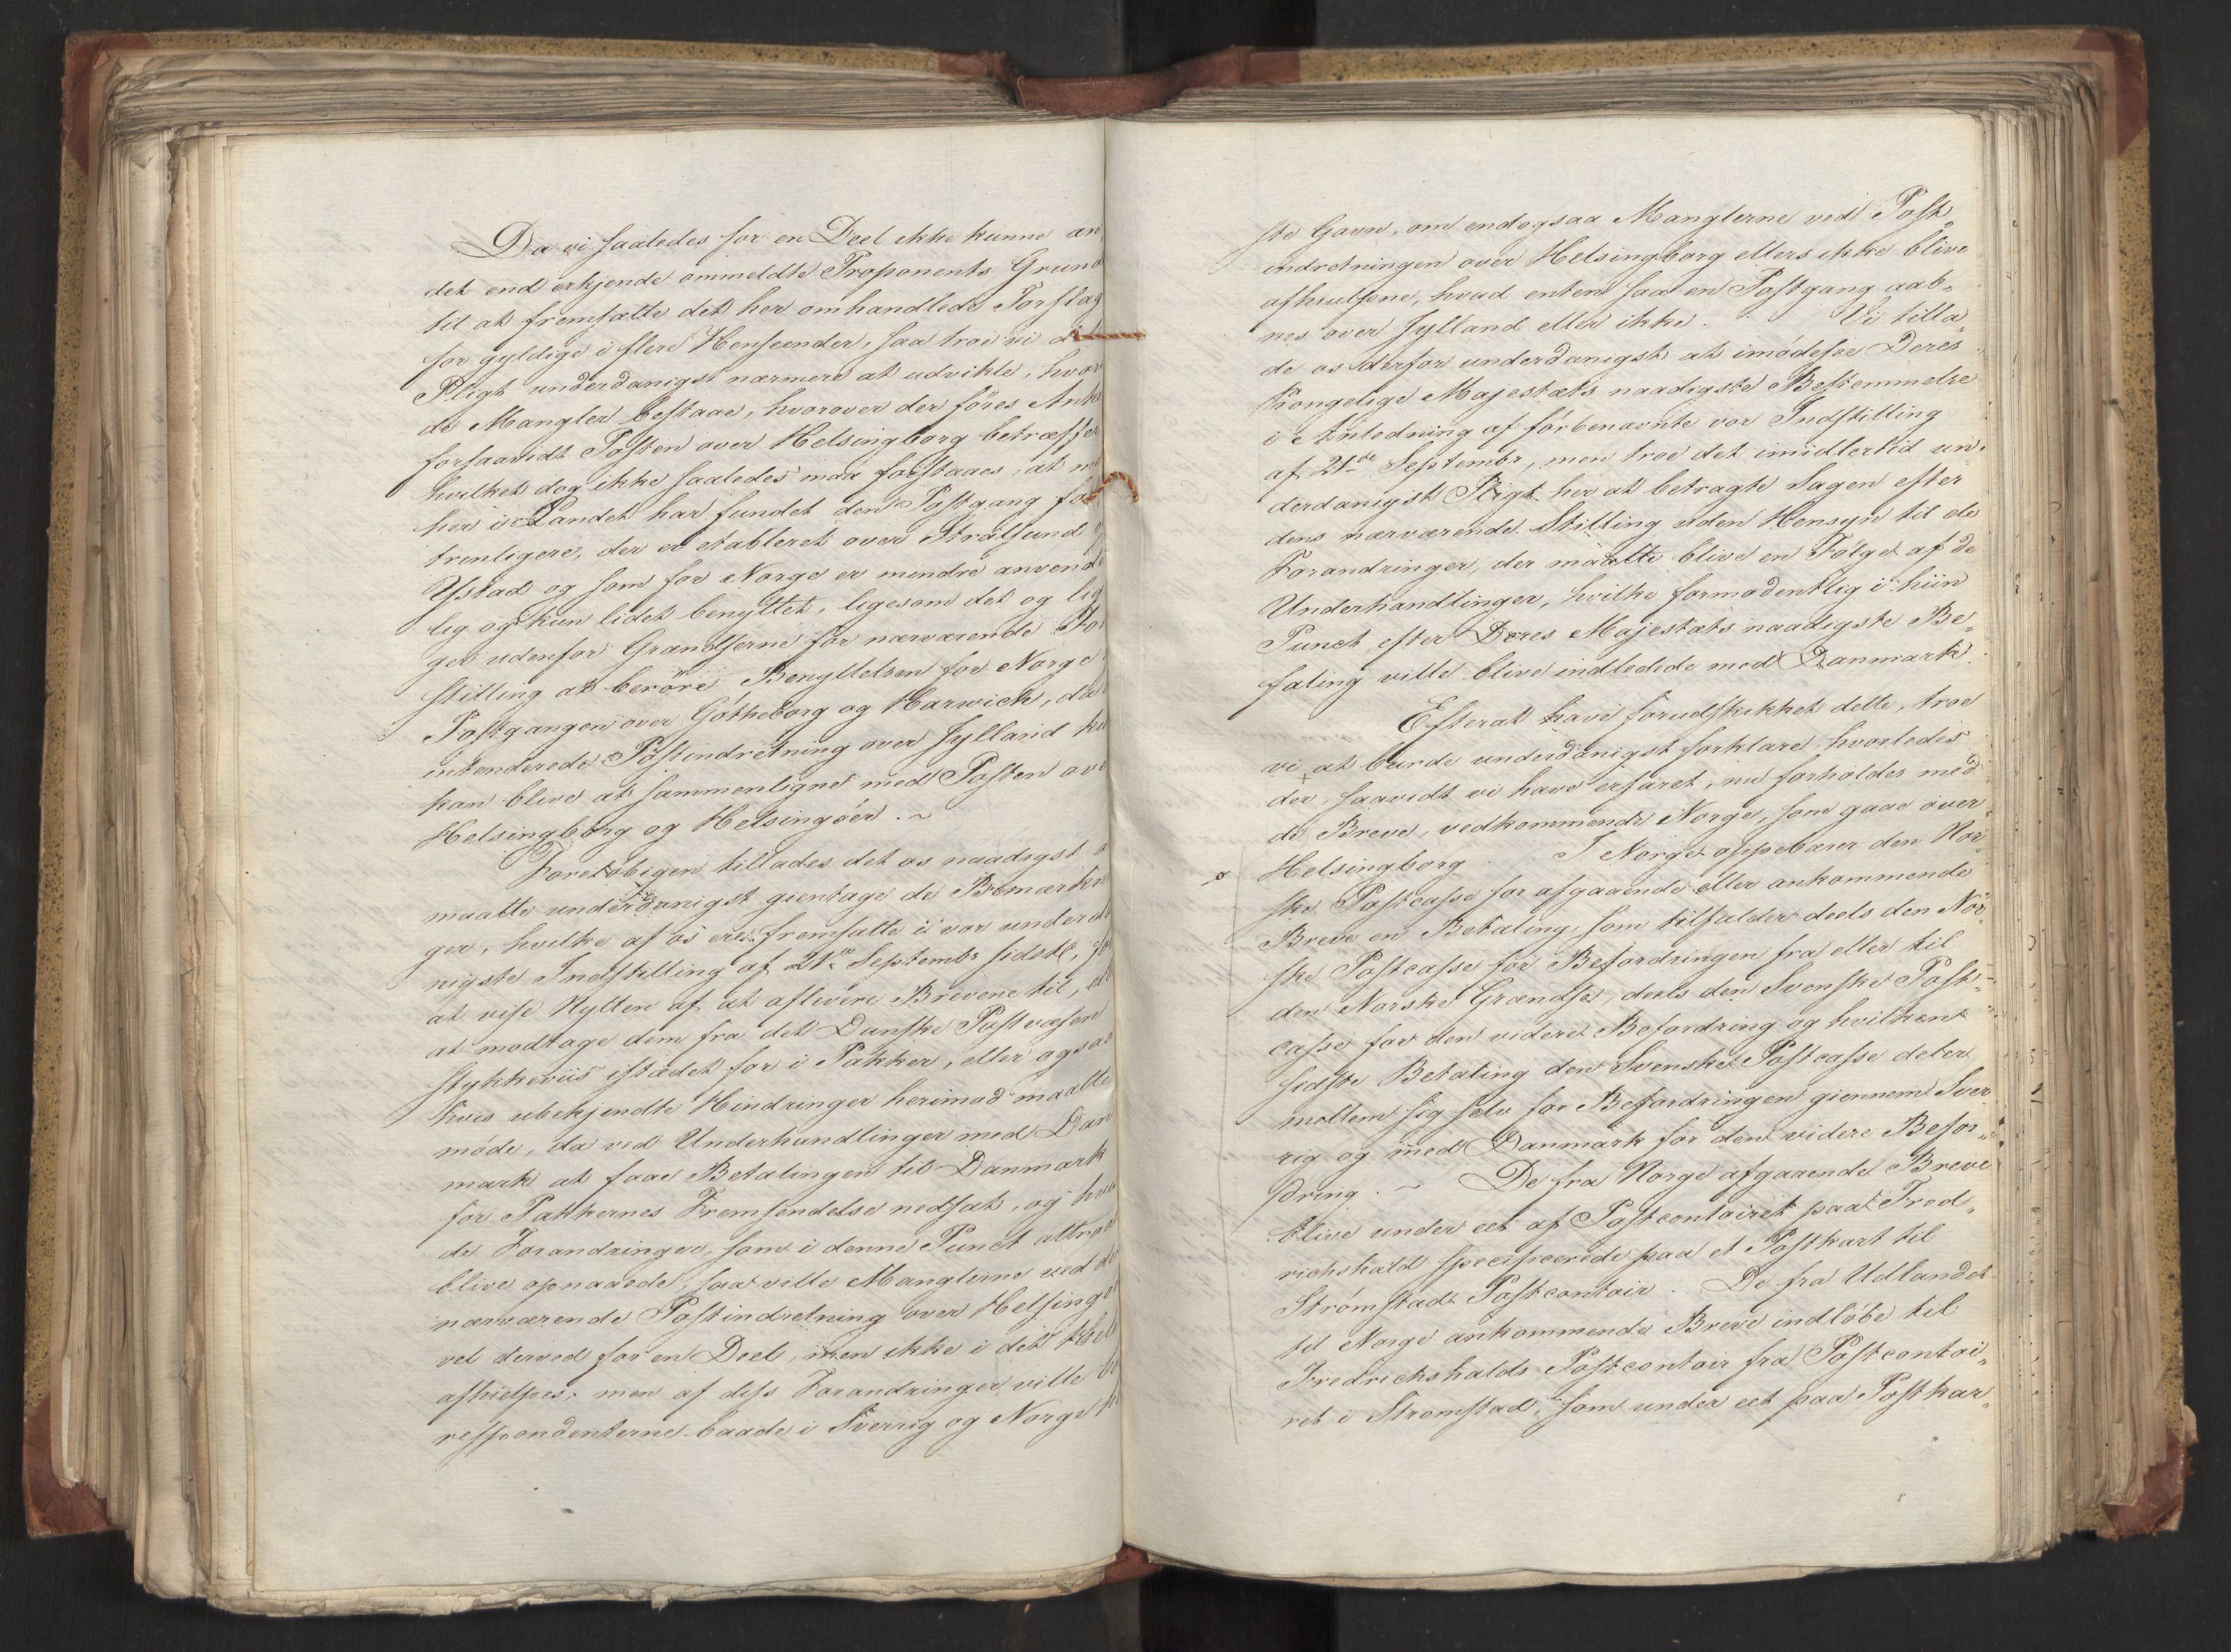 Da vi saaledes for en Deel ikke kunne an
det end erkjende ommeldte Proponents Grund
til at fremsætte det her omhandlede Forslag
for gyldige i flere Henseender, saa troe vi det
Pligt underdanigst nærmere at udvikle, hvor
de Mangler bestaae, hvorover der föres Anke
forsaavidt Posten over Helsingborg betræffer
hvilket dog ikke saaledes maa forstaaes, at m
her i Landet har fundet den Postgang fo
trinligere, der er etableret over Stralsund
Ystad og som for Norge er mindre anvende
lig og kun lidet benyttet, ligesom det og lig
ger udenfor Grændserne for nærværende Fo
stilling at beröre Benyttelsen for Norge
Postgangen over Götheborg og Harwich, da
intenderede Postindretning over Jylland ku
kan blive at sammenligne med Posten ove
Helsingborg og Helsingöer. ~
Forelöbigen tillades det os naadigst
maatte underdanigst gientage de Bemærkn
ger, hvilke af os ere fremsatte i vor underda
nigste Indstilling af 21de Septembr sidstl,
at vise Nytten af at aflevere Brevene til, el
at modtage dem fra det Danske Postvæsen
stykkeviis istædet for i Pakker, eller ogsaa
hvis ubekjendte Hindringer herimod maatte
möde, da ved Underhandlinger med Dan
mark at faae Betalingen til Danmark
for Pakkernes Fremsendelse nedsat, og hvis
de Forandringer, som i denne Punct attraaes
blive opnaaede, saa ville Manglerne ved de
nærværende Postindretning over Helsing
vel derved for en Deel, men ikke i det Hele
afhielpes; men af diss Forandringer ville
respondenterne baade i Sverrig og Norge
ste Gavn, om endogsaa Manglerne ved Post„
indretningen over Helsingborg ellers ikke blive
afhiulpne, hvad enten saa en Postgang aab„
nes over Jylland eller ikke. Vi tilla„
de os derfor underdanigst at imödesee Deres
Kongelige Majestæts naadigste Bestemmelse
i Anledning af förbenævnte vor Indstilling
af 21de Septembr, men troe det imidlertid un„
derdanigst Pligt her at betragte Sagen efter
dens nærværende Stilling uden Hensyn til de
Forandringer, der maatte blive en Fölge af de
Underhandlinger, hvilke formodentlig i hiin
Punct efter Deres Majestæts naadigste Be„
faling ville blive indledede med Danmark.
Efterat have forudskikket dette, troe
vi at burde underdanigst forklare, hvorledes
der, saavidt vi have erfaret, nu forholdes med
de Breve, vedkommende Norge, som gaae over
Helsingborg. I Norge oppebærer den Nor„
ske Postcasse for afgaaende eller ankommende
Breve en Betaling, som tilfalder deels den Nor„
ske Postcasse for Befordringen fra eller til
den Norske Grændse, deels den Svenske Post„
casse for den videre Befordring og hvilken
sidste Betaling den Svenske Postcasse deler
mellem sig selv for Befordringen giennem Sver„
rig og med Danmark for den videre Befor„
dring. ~ De fra Norge afgaaende Breve
blive under eet af Postcontoiret paa Fred„
richshald specificerede paa et Postkart til
Strömstads Postcontoir. De fra Udlandet
til Norge ankommende Breve indlöbe til
Fredrichshalds Postcontoir fra Postcontoi„
ret i Stromstad, som under eet paa Postkar„